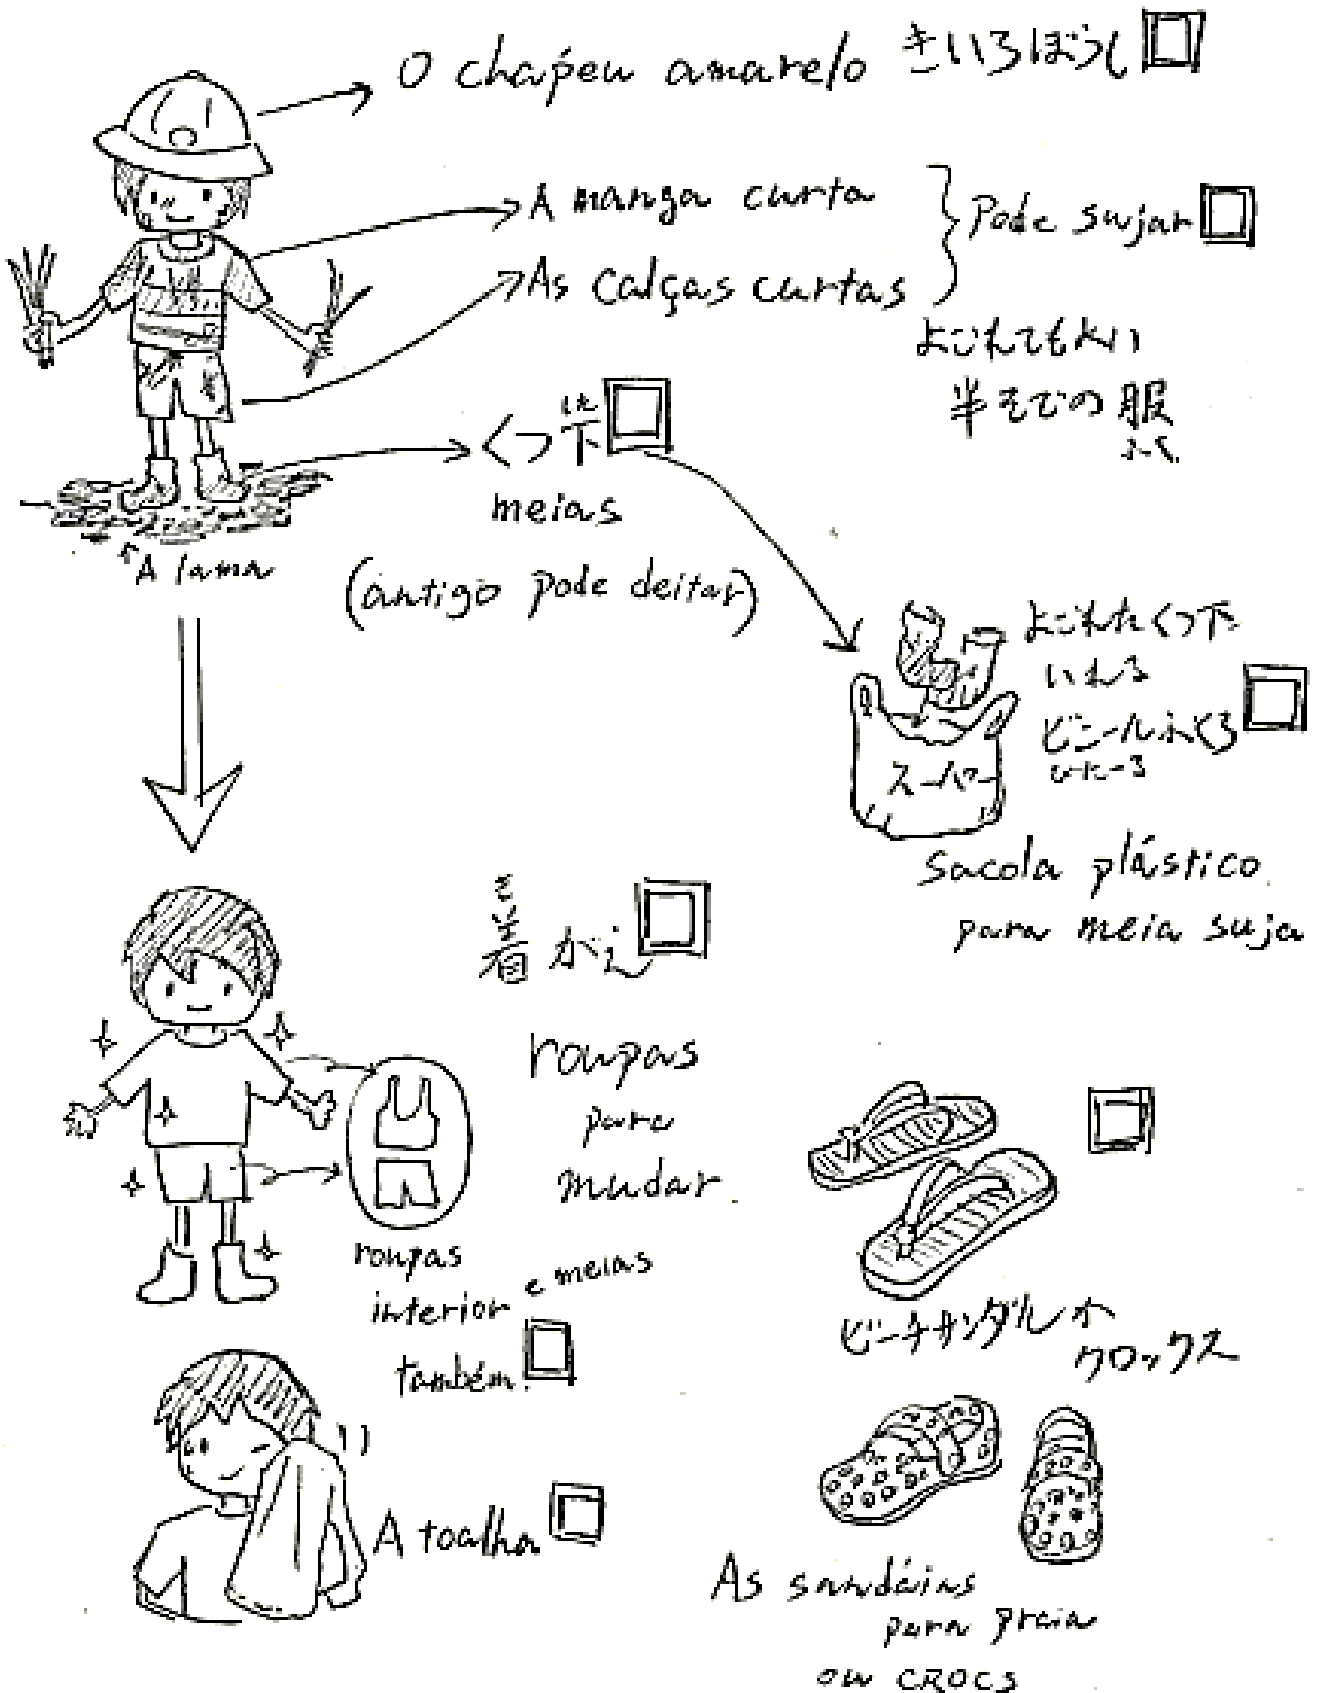 O chapéu amarelo きいろぼうし
A manga curta
As calças curtas
Pode sujar
よごれてもよい
半そでの服
ふく
くつ下
した
meias
(antigo pode deitar)
A lama
よごれたくつ下
いれる
ビニールふくろ
スーパー
sacola plástico
para meia suja
着がえ
き
roupas
para
mudar
roupas
interior e meias
também.
ビーチサンダルか
クロックス
A toalha
As sandáias
para praia
ou CROCS